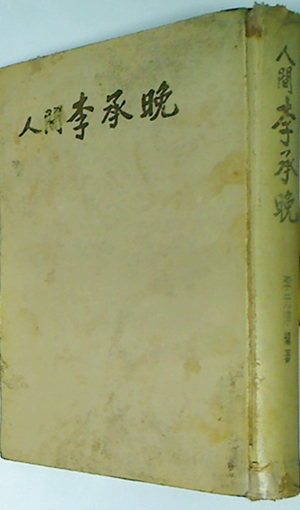 人間李承晩
人間李承晩